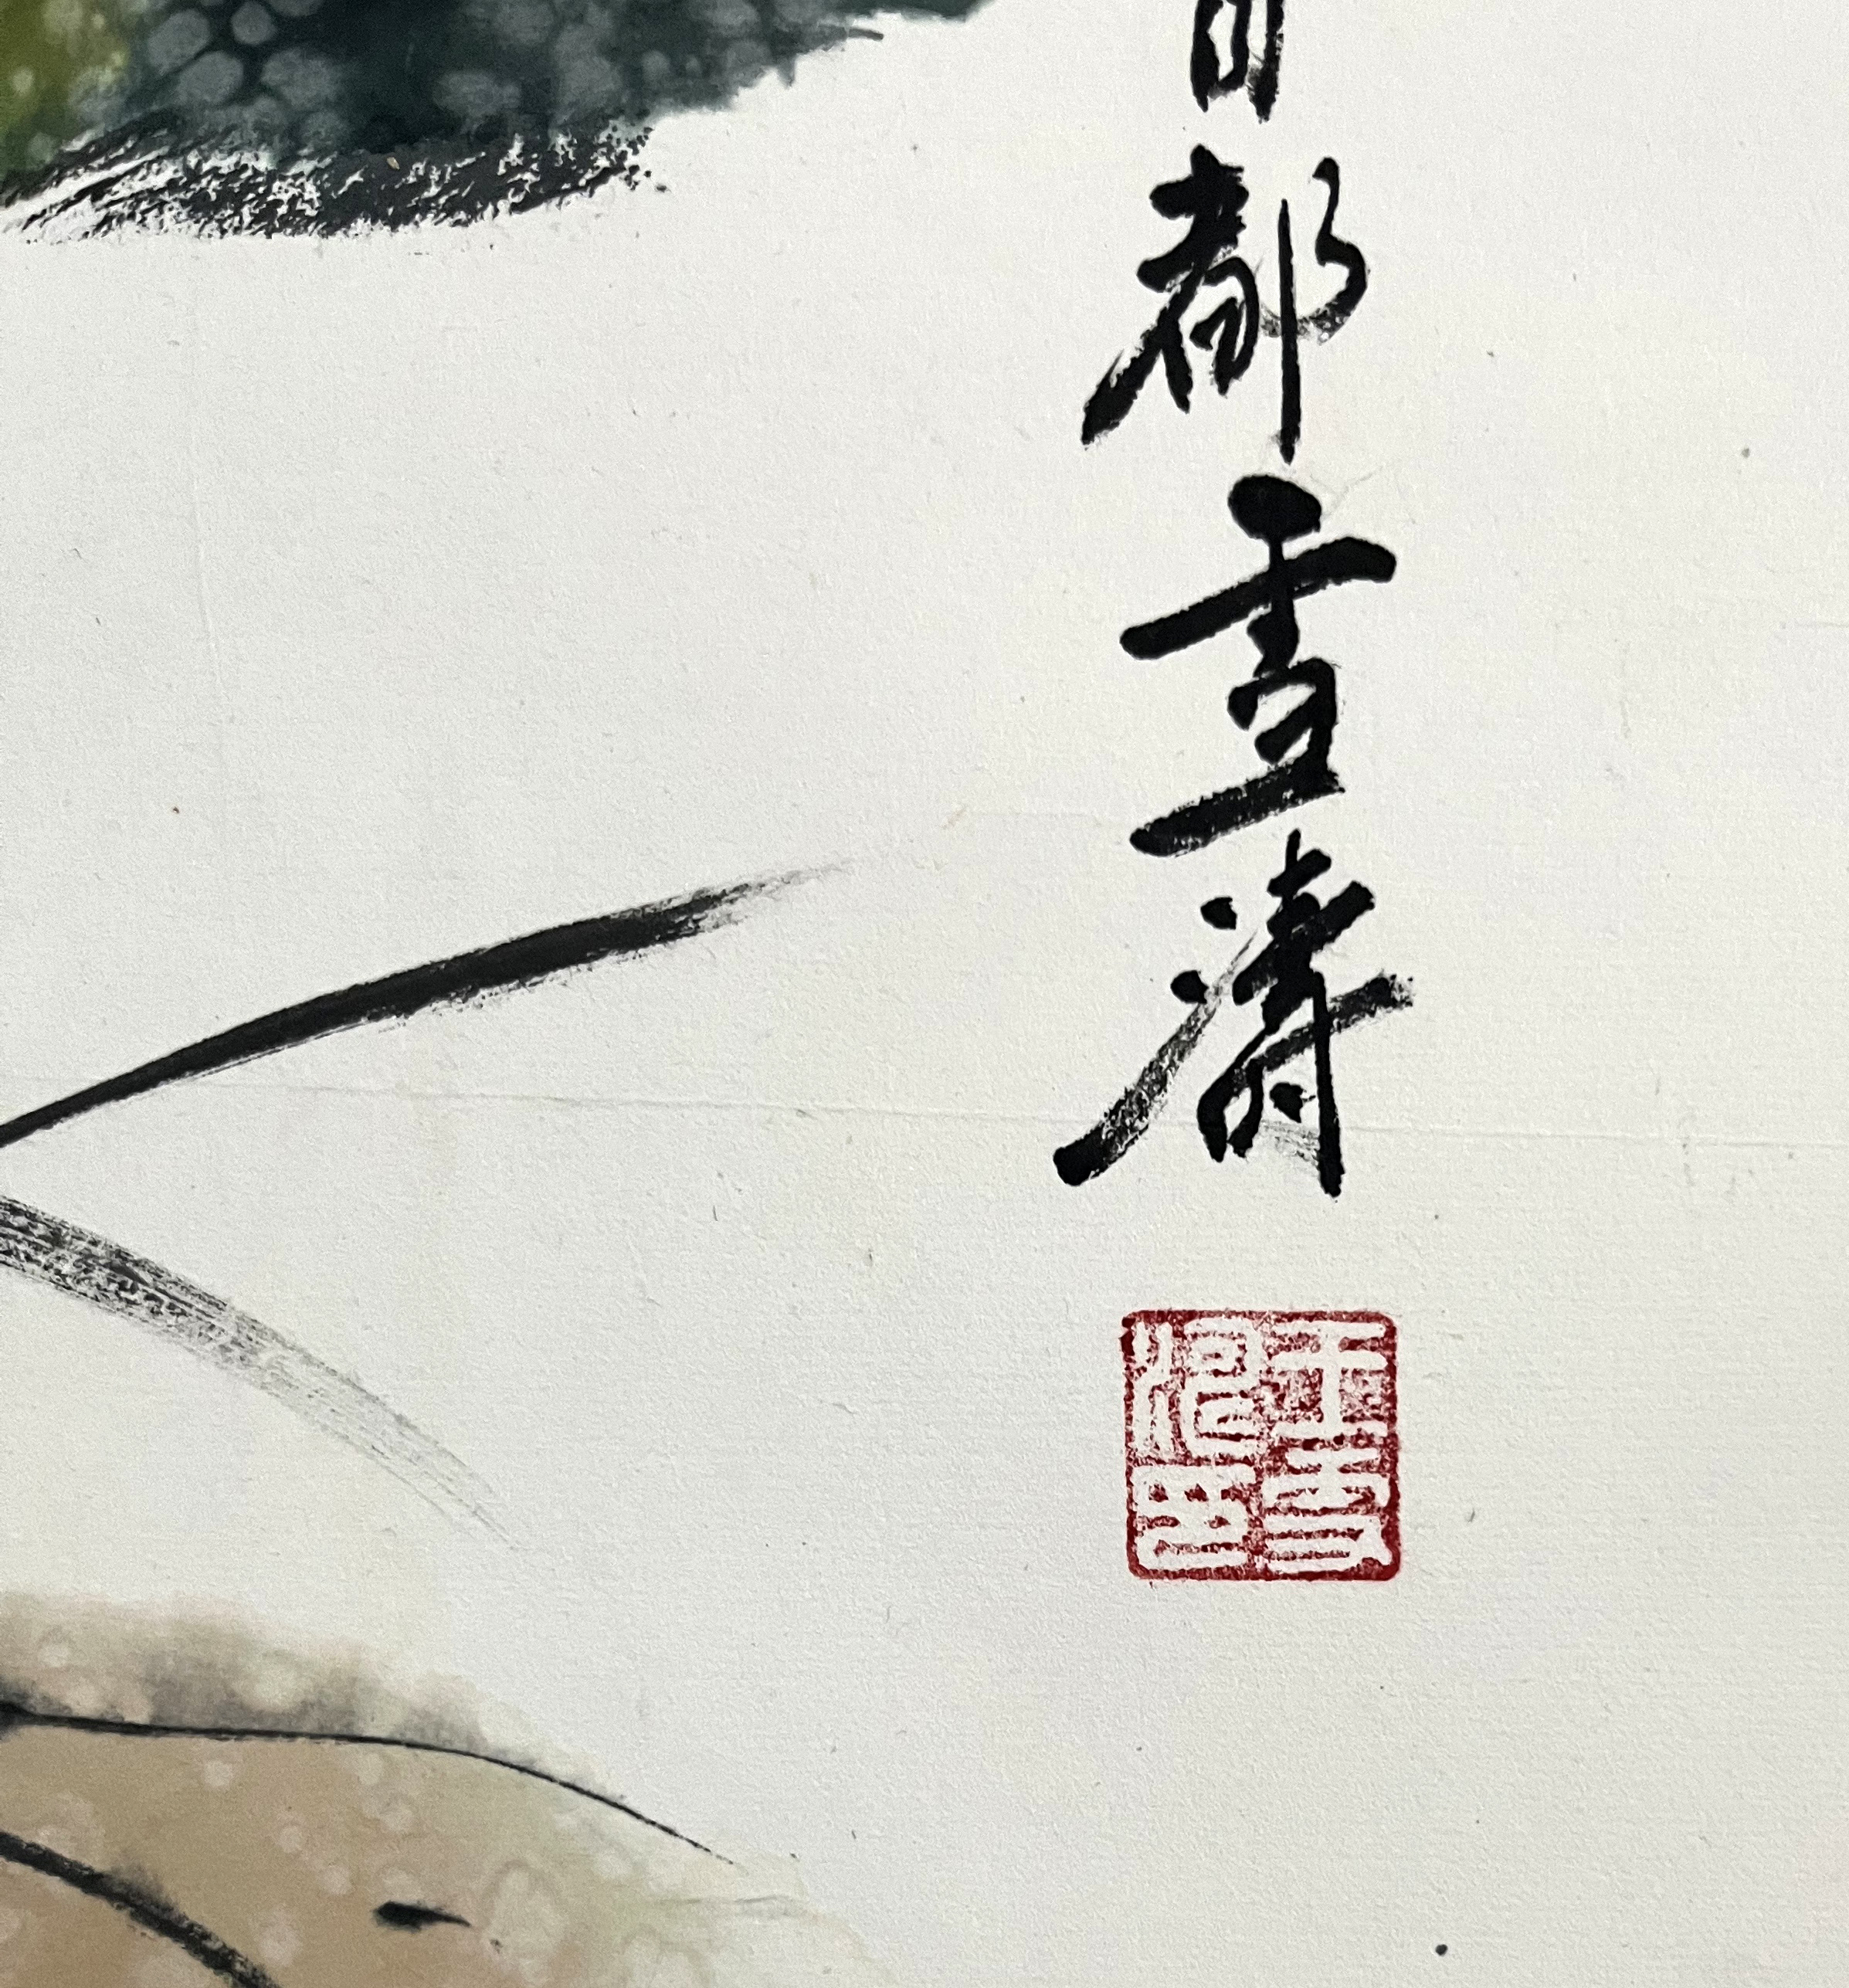 首都雪濤
王雪
濤印